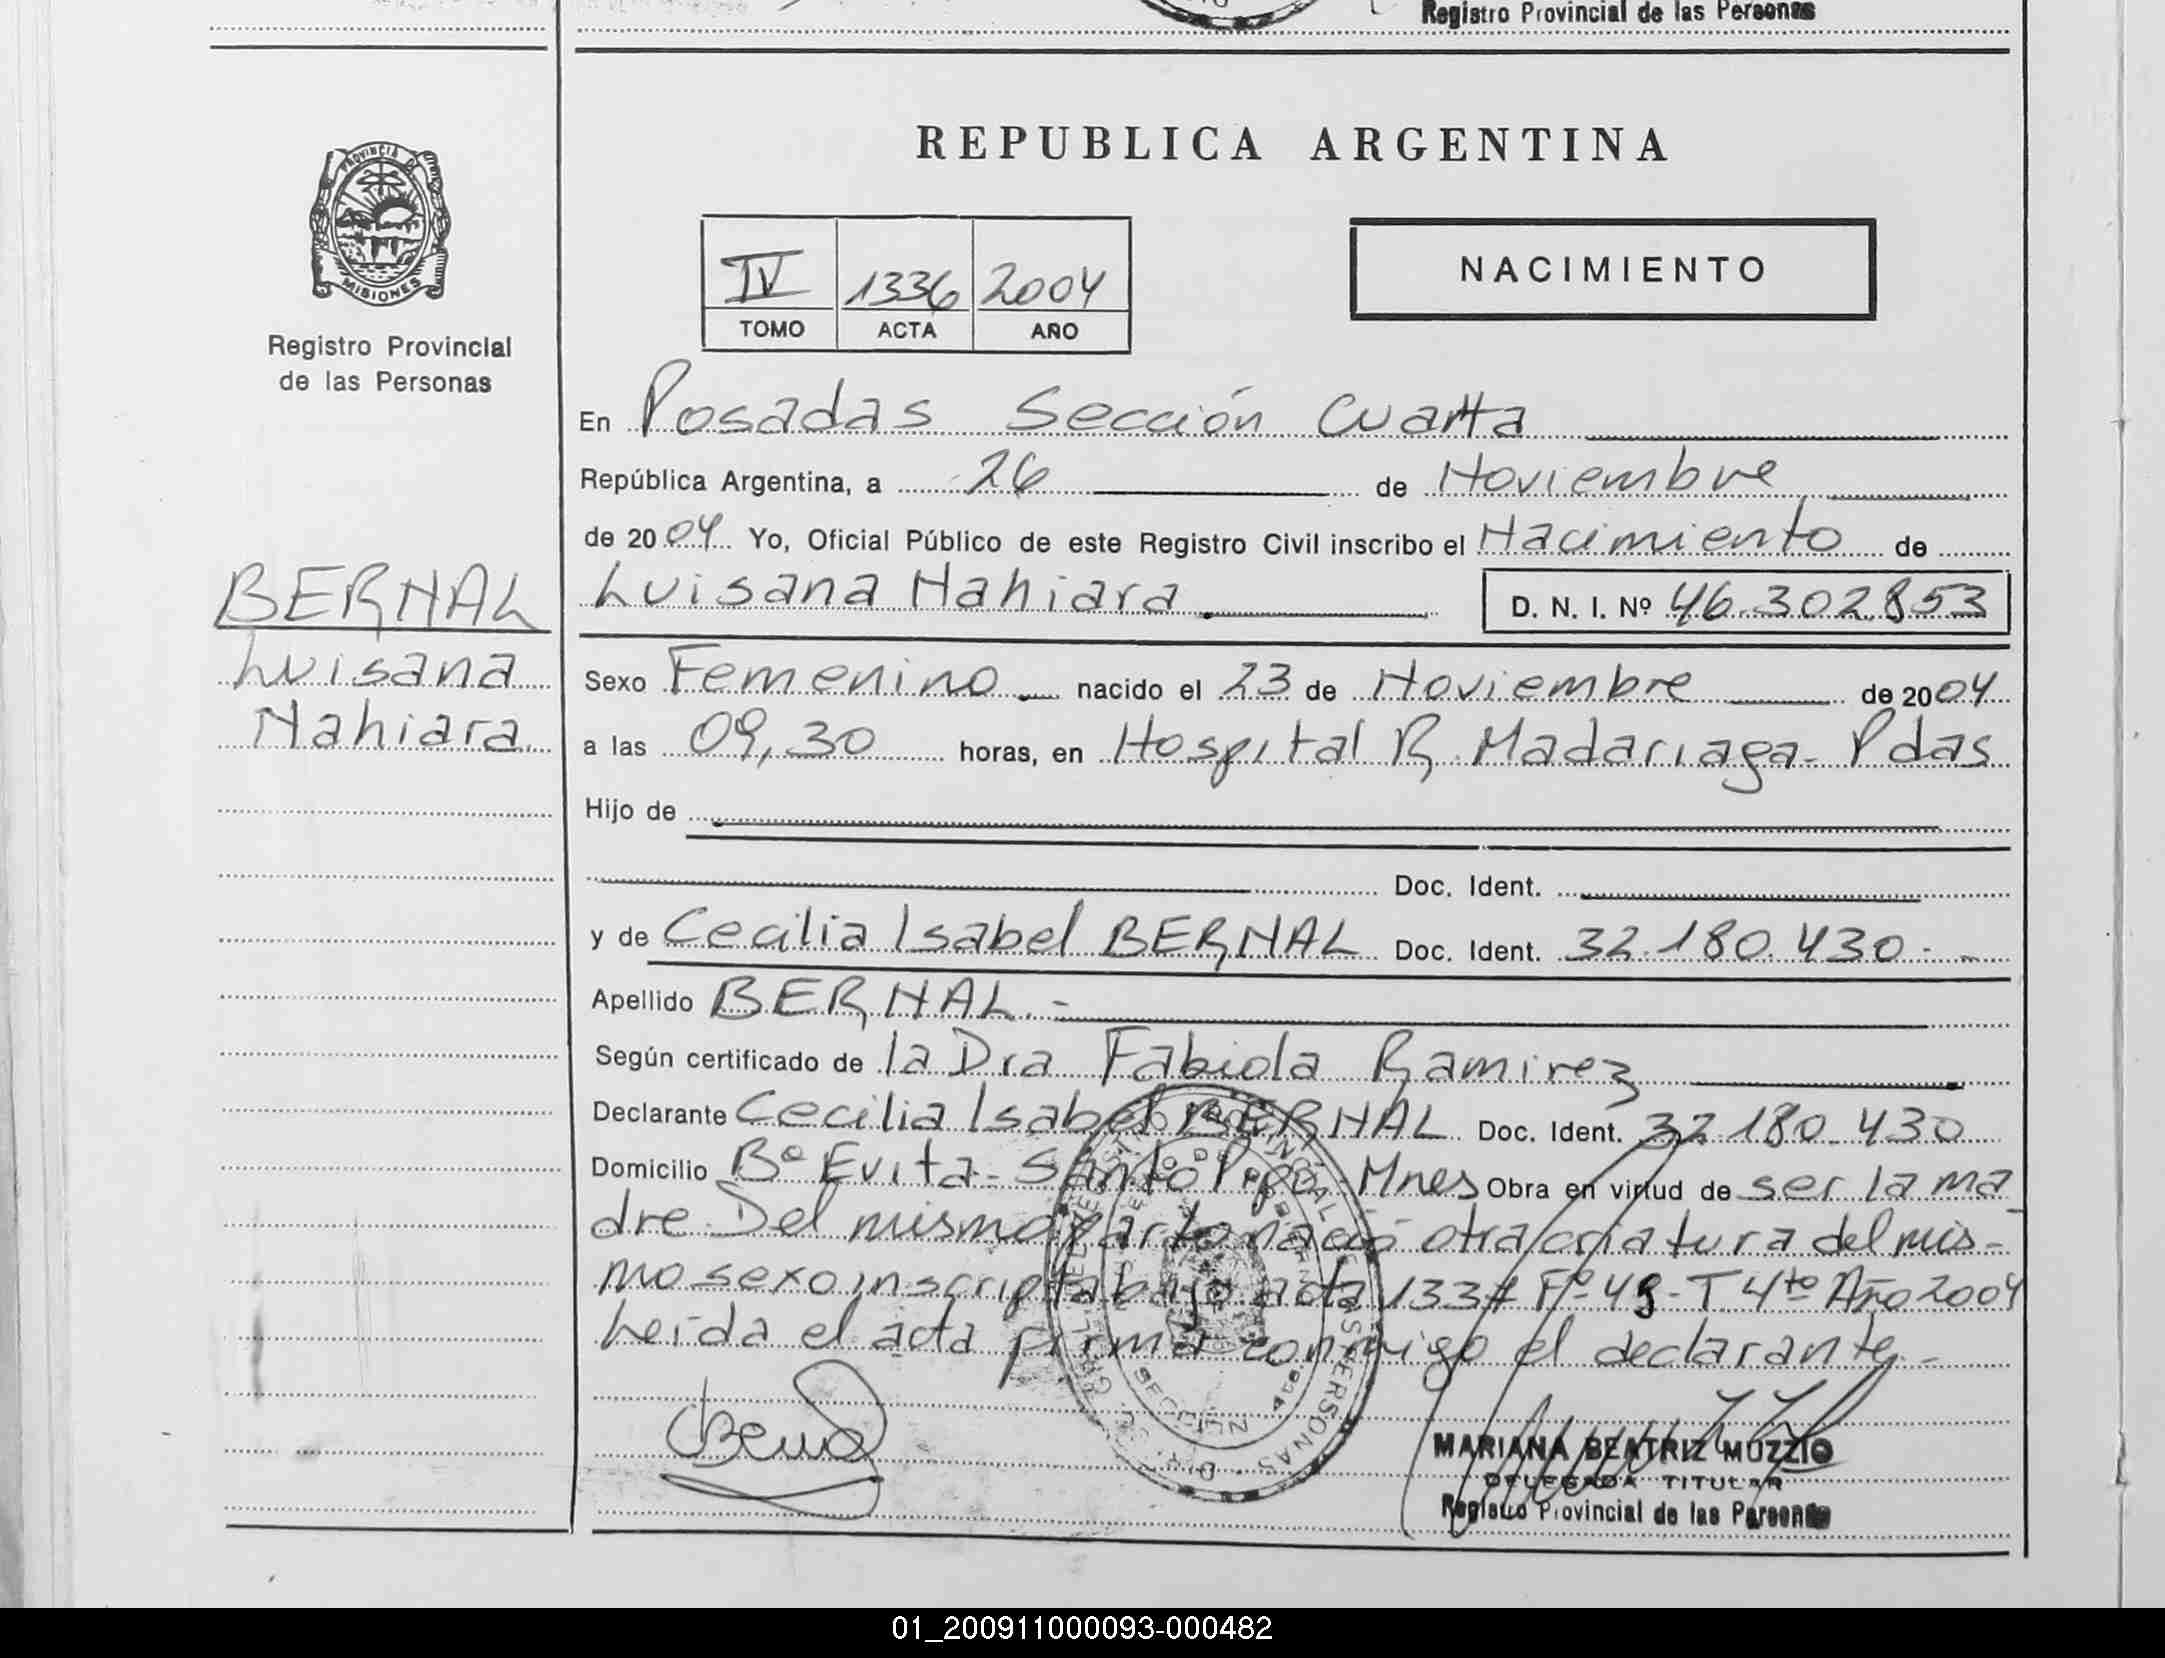 Registro Provincial de las Personas
PROVINCIA DE
MISIONES
Registro Provincial
de las Personas
BERNAL
Luisana
Nahiara.
REPUBLICA ARGENTINA
IV 1336 2004
TOMO ACTA AÑO
NACIMIENTO
En Posadas Sección Cuarta
República Argentina, a 26 de Noviembre
de 2004 Yo, Oficial Público de este Registro Civil inscribo el Nacimiento de
Luisana Nahiara. D. N. I. Nº 46.302.853
Sexo Femenino nacido el 23 de Noviembre de 2004
a las 09,30 horas, en Hospital R. Madariaga - Pdas
Hijo de
Doc. Ident.
y de Cecilia Isabel BERNAL Doc. Ident. 32.180.430.-
Apellido BERNAL.-
Según certificado de la Dra Fabiola Ramirez
Declarante Cecilia Isabel BERNAL Doc. Ident. 32.180.430
Domicilio Bº Evita - Santo Pipo - Mnes Obra en virtud de ser la ma
dre. Del mismo parto nació otra criatura del mis-
mo sexo inscripta bajo acta 1337 Fº 49 - T 4to Año 2004
Leída el acta firma conmigo el declarante.-
MARIANA BEATRIZ MUZZIO
DELEGADA TITULAR
Registro Provincial de las Personas
01_200911000093-000482